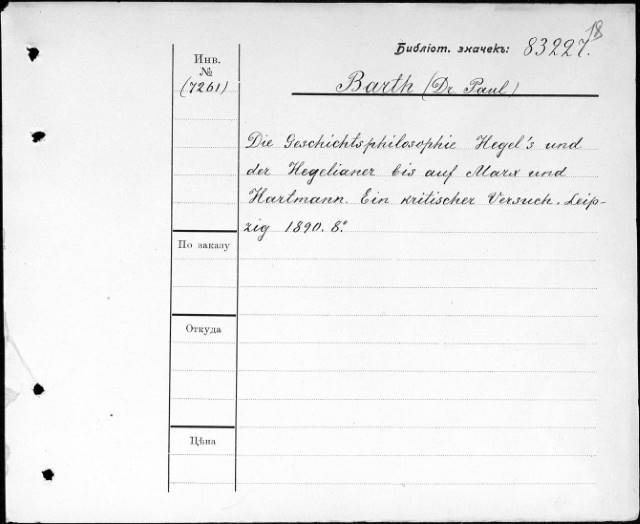 18
Библіот. значекъ: 83227.
Инв.
№
(7261)
Barth (Dr Paul)
Die Geschichtsphilosophie Hegel's und
der Hegelianer bis auf Marx und
Hartmann. Ein kritischer Versuch. Leip-
zig 1890. 8.°
По заказу
Откуда
Цѣна